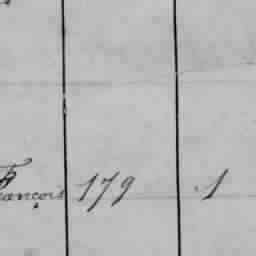 François 179 1